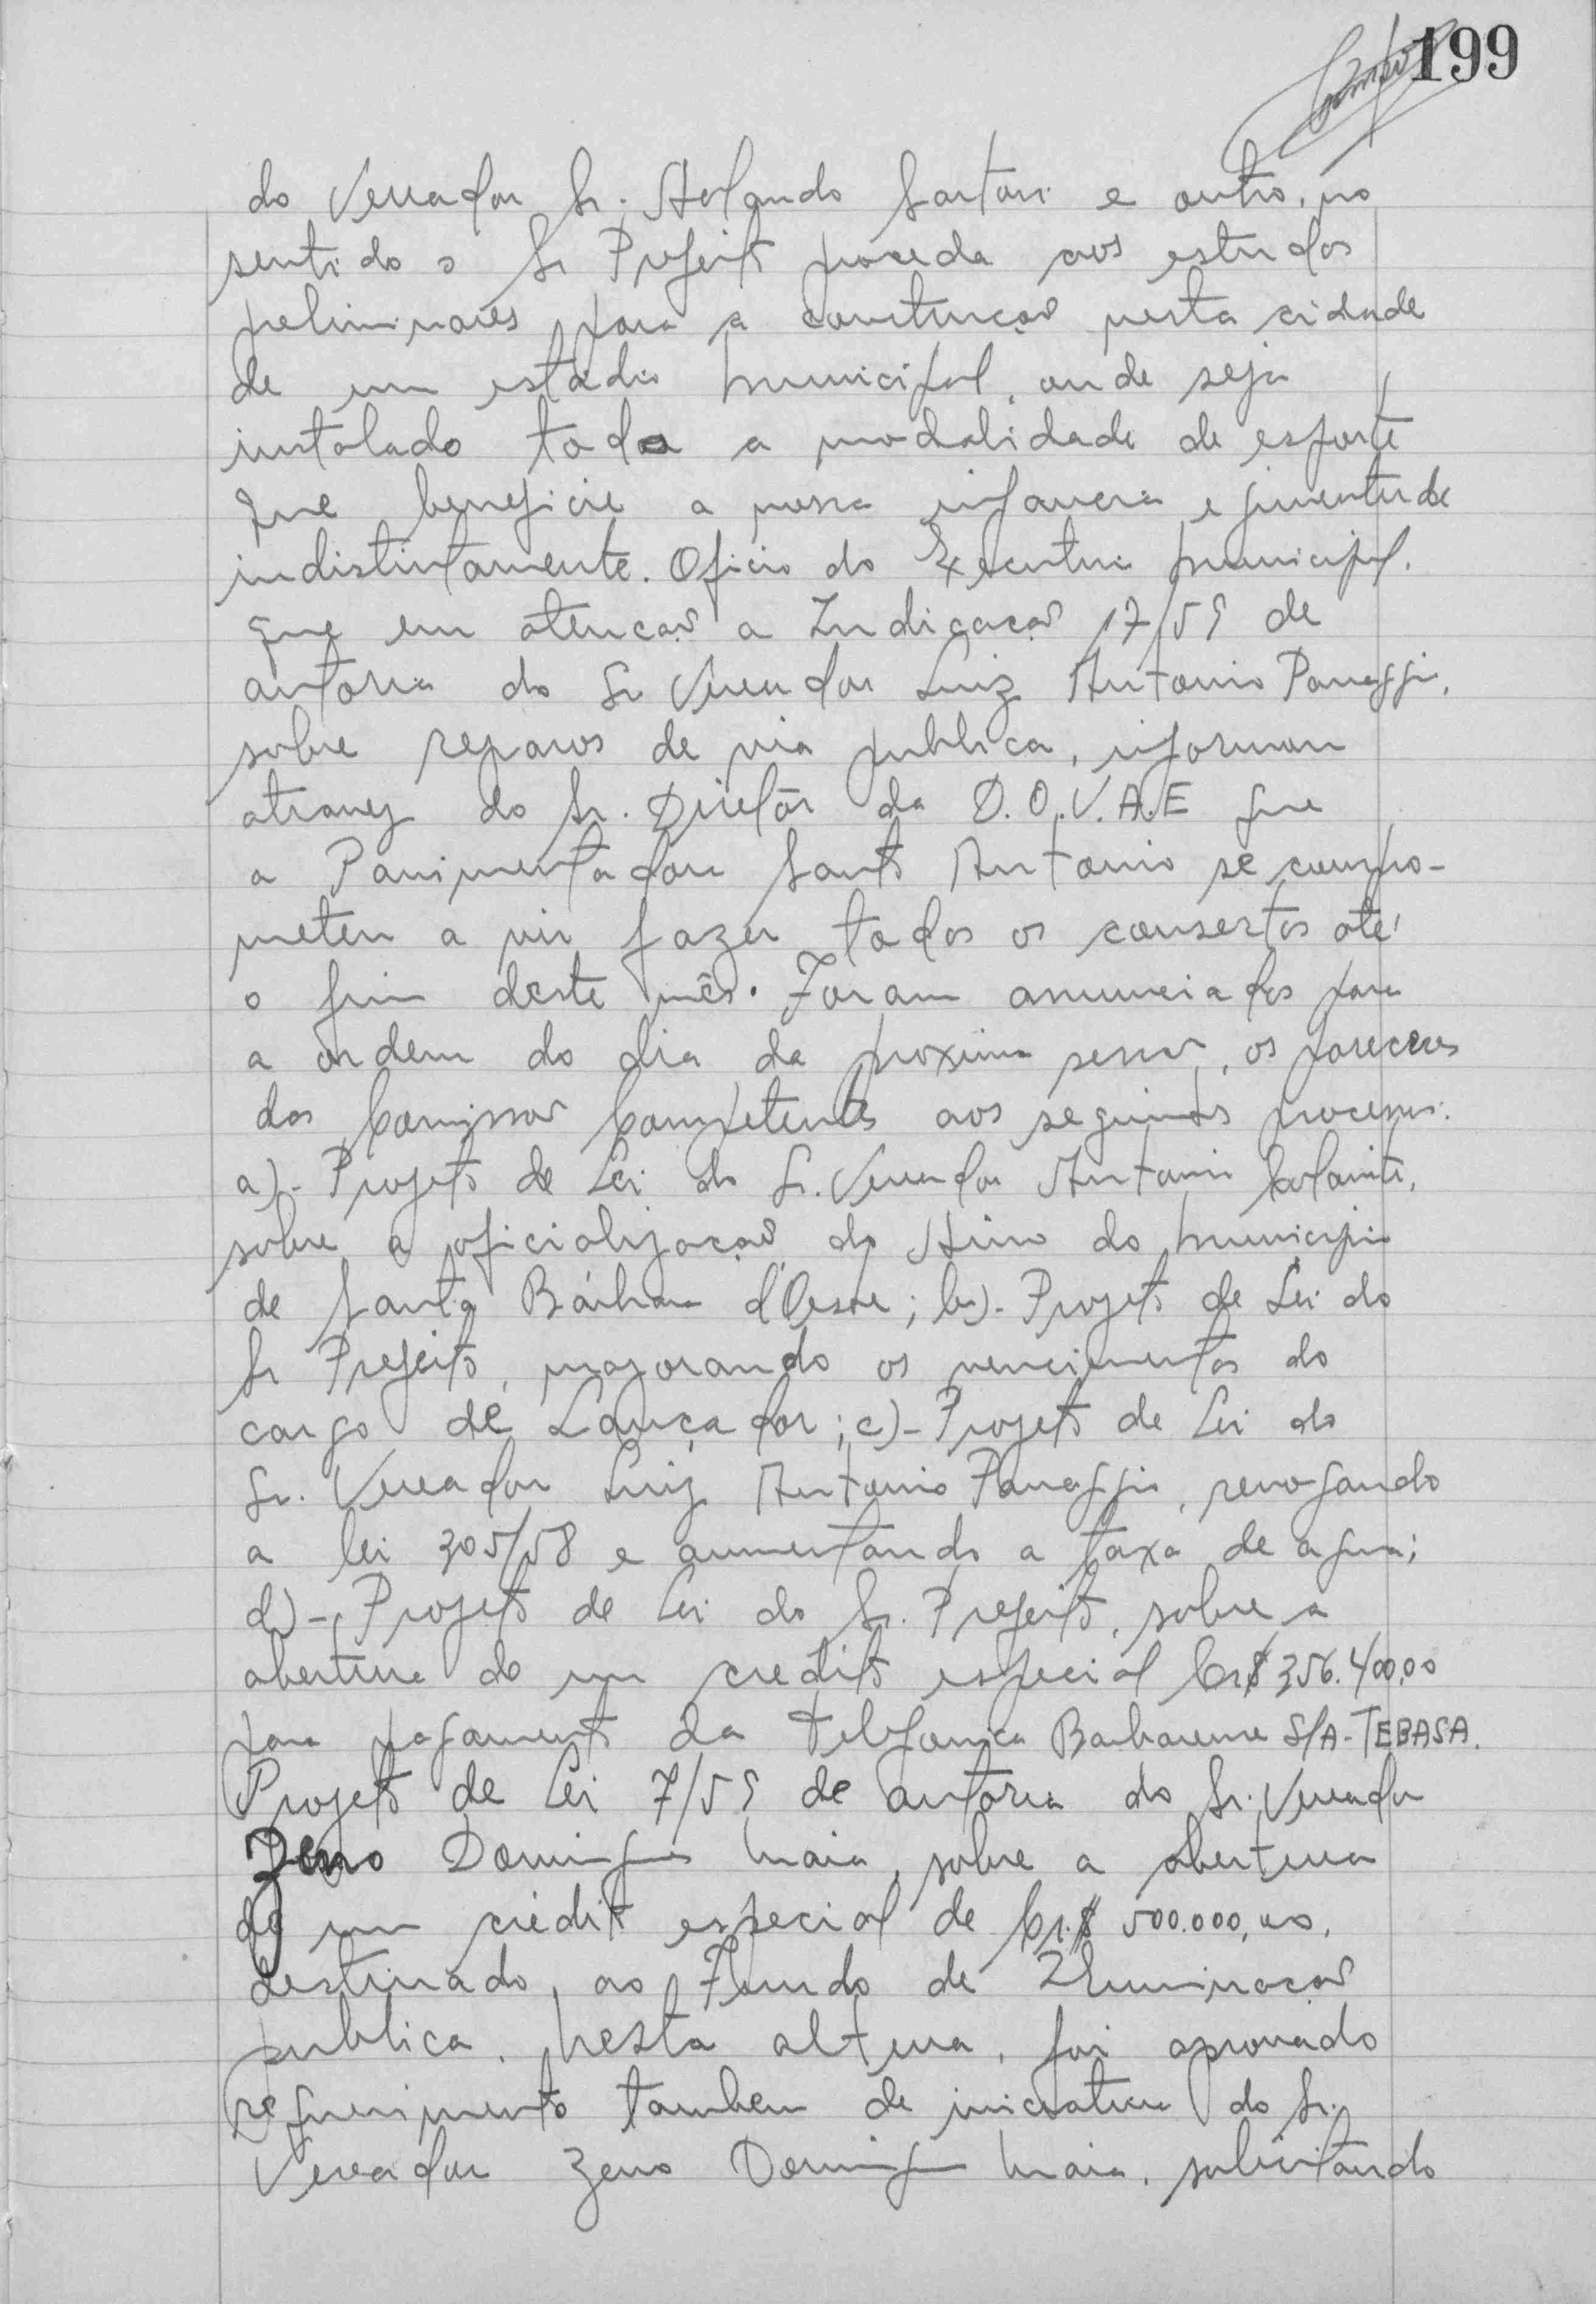 199
do Vereador Sr. Holando Sartori e outro, no
sentido o Sr Prefeito proceda aos estudos
preliminares para a construção nesta cidade
de um estádio Municipal, onde seja
instalado toda a modalidade de esporte
que beneficie a nossa infancia e juventude
indistintamente. Oficio do Executivo Municipal.
que em atenção a Indicação 17/59 de
autoria do Sr Vereador Luiz Antonio Panaggio,
sobre reparos de via publica, informou
atravez do Sr. Diretôr da D.O.V.A.E que
a Pavimentadora Santo Antonio se compro-
meteu a vir fazer todos os consertos até
o fim deste mês. Foram anunciados para
a ordem do dia da proxima sessão, os pareceres
das Comissões Competentes aos seguintes processos:
a)- Projeto de Lei do Sr. Vereador Antonio
sobre a oficialização do Hino do Municipio
de Santa Bárbara d'Oeste; b)- Projeto de Lei do
Sr Prefeito, majorando os vencimentos do
cargo de Lançador; c)- Projeto de Lei do
Sr. Vereador Luiz Antonio Panaggio, revogando
a lei 305/58 e aumentando a taxa de agua;
d)- Projeto de Lei do Sr. Prefeito, sobre a
abertura de um credito especial Cr$ 356.400,00
para pagamento da Telefonica Barbarense S/A-TEBASA.
Projeto de Lei 7/59 de autoria do Sr. Vereador
Zeno Domingues Maia, sobre a abertura
de um crédito especial de Cr.$ 500.000,00,
destinado ao Fundo de Iluminação
publica. Nesta altura, foi aprovado
requerimento tambem de iniciativa do Sr.
Vereador Zeno Domingues Maia, solicitando